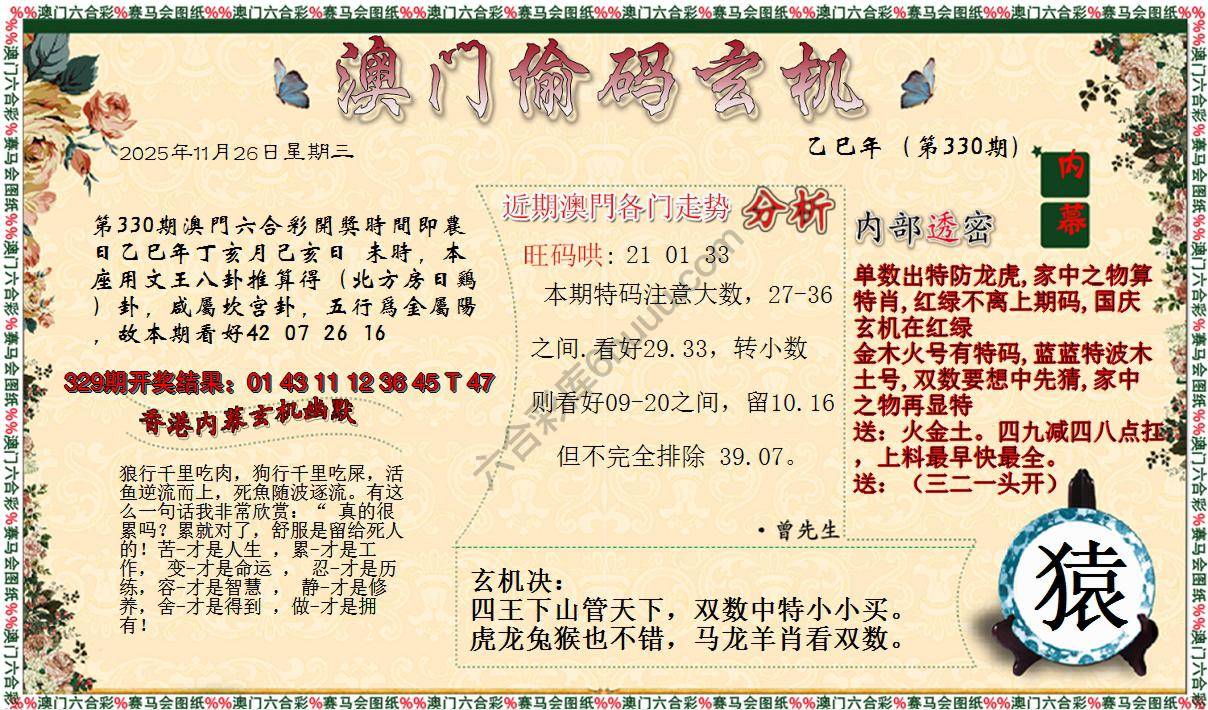 %%澳门六合彩%赛马会图纸%%澳门六合彩%赛马会图纸%%澳门六合彩%赛马会图纸%%澳门六合彩%赛马会图纸%%澳门六合彩%赛马会图纸%%澳门六合彩%赛马会图纸%%
澳门偷码玄机
2025年11月26日星期三
乙巳年（第330期）
内幕
第330期澳門六合彩開獎時間即農
日乙巳年丁亥月己亥日 未時，本
座用文王八卦推算得（北方房日鷄
）卦，咸屬坎宫卦，五行爲金屬陽
，故本期看好42 07 26 16
329期开奖结果：01 43 11 12 36 45 T 47
香港内幕玄机幽默
狼行千里吃肉，狗行千里吃屎，活
鱼逆流而上，死魚随波逐流。有这
么一句话我非常欣赏：“ 真的很
累吗？累就对了，舒服是留给死人
的！苦-才是人生 ，累-才是工
作， 变-才是命运 ， 忍-才是历
练，容-才是智慧 ， 静-才是修
养，舍-才是得到 ，做-才是拥
有！
近期澳門各门走势 分析
旺码哄: 21 01 33
本期特码注意大数，27-36
之间.看好29.33，转小数
则看好09-20之间，留10.16
但不完全排除 39.07。
·曾先生
内部透密
单数出特防龙虎,家中之物算
特肖,红绿不离上期码,国庆
玄机在红绿
金木火号有特码,蓝蓝特波木
土号,双数要想中先猜,家中
之物再显特
送：火金土。四九减四八点扛
，上料最早快最全。
送：（三二一头开）
玄机决：
四王下山管天下，双数中特小小买。
虎龙兔猴也不错，马龙羊肖看双数。
猿
%%澳门六合彩%赛马会图纸%%澳门六合彩%赛马会图纸%%澳门六合彩%赛马会图纸%%澳门六合彩%赛马会图纸%%澳门六合彩%赛马会图纸%%澳门六合彩%赛马会图纸%%